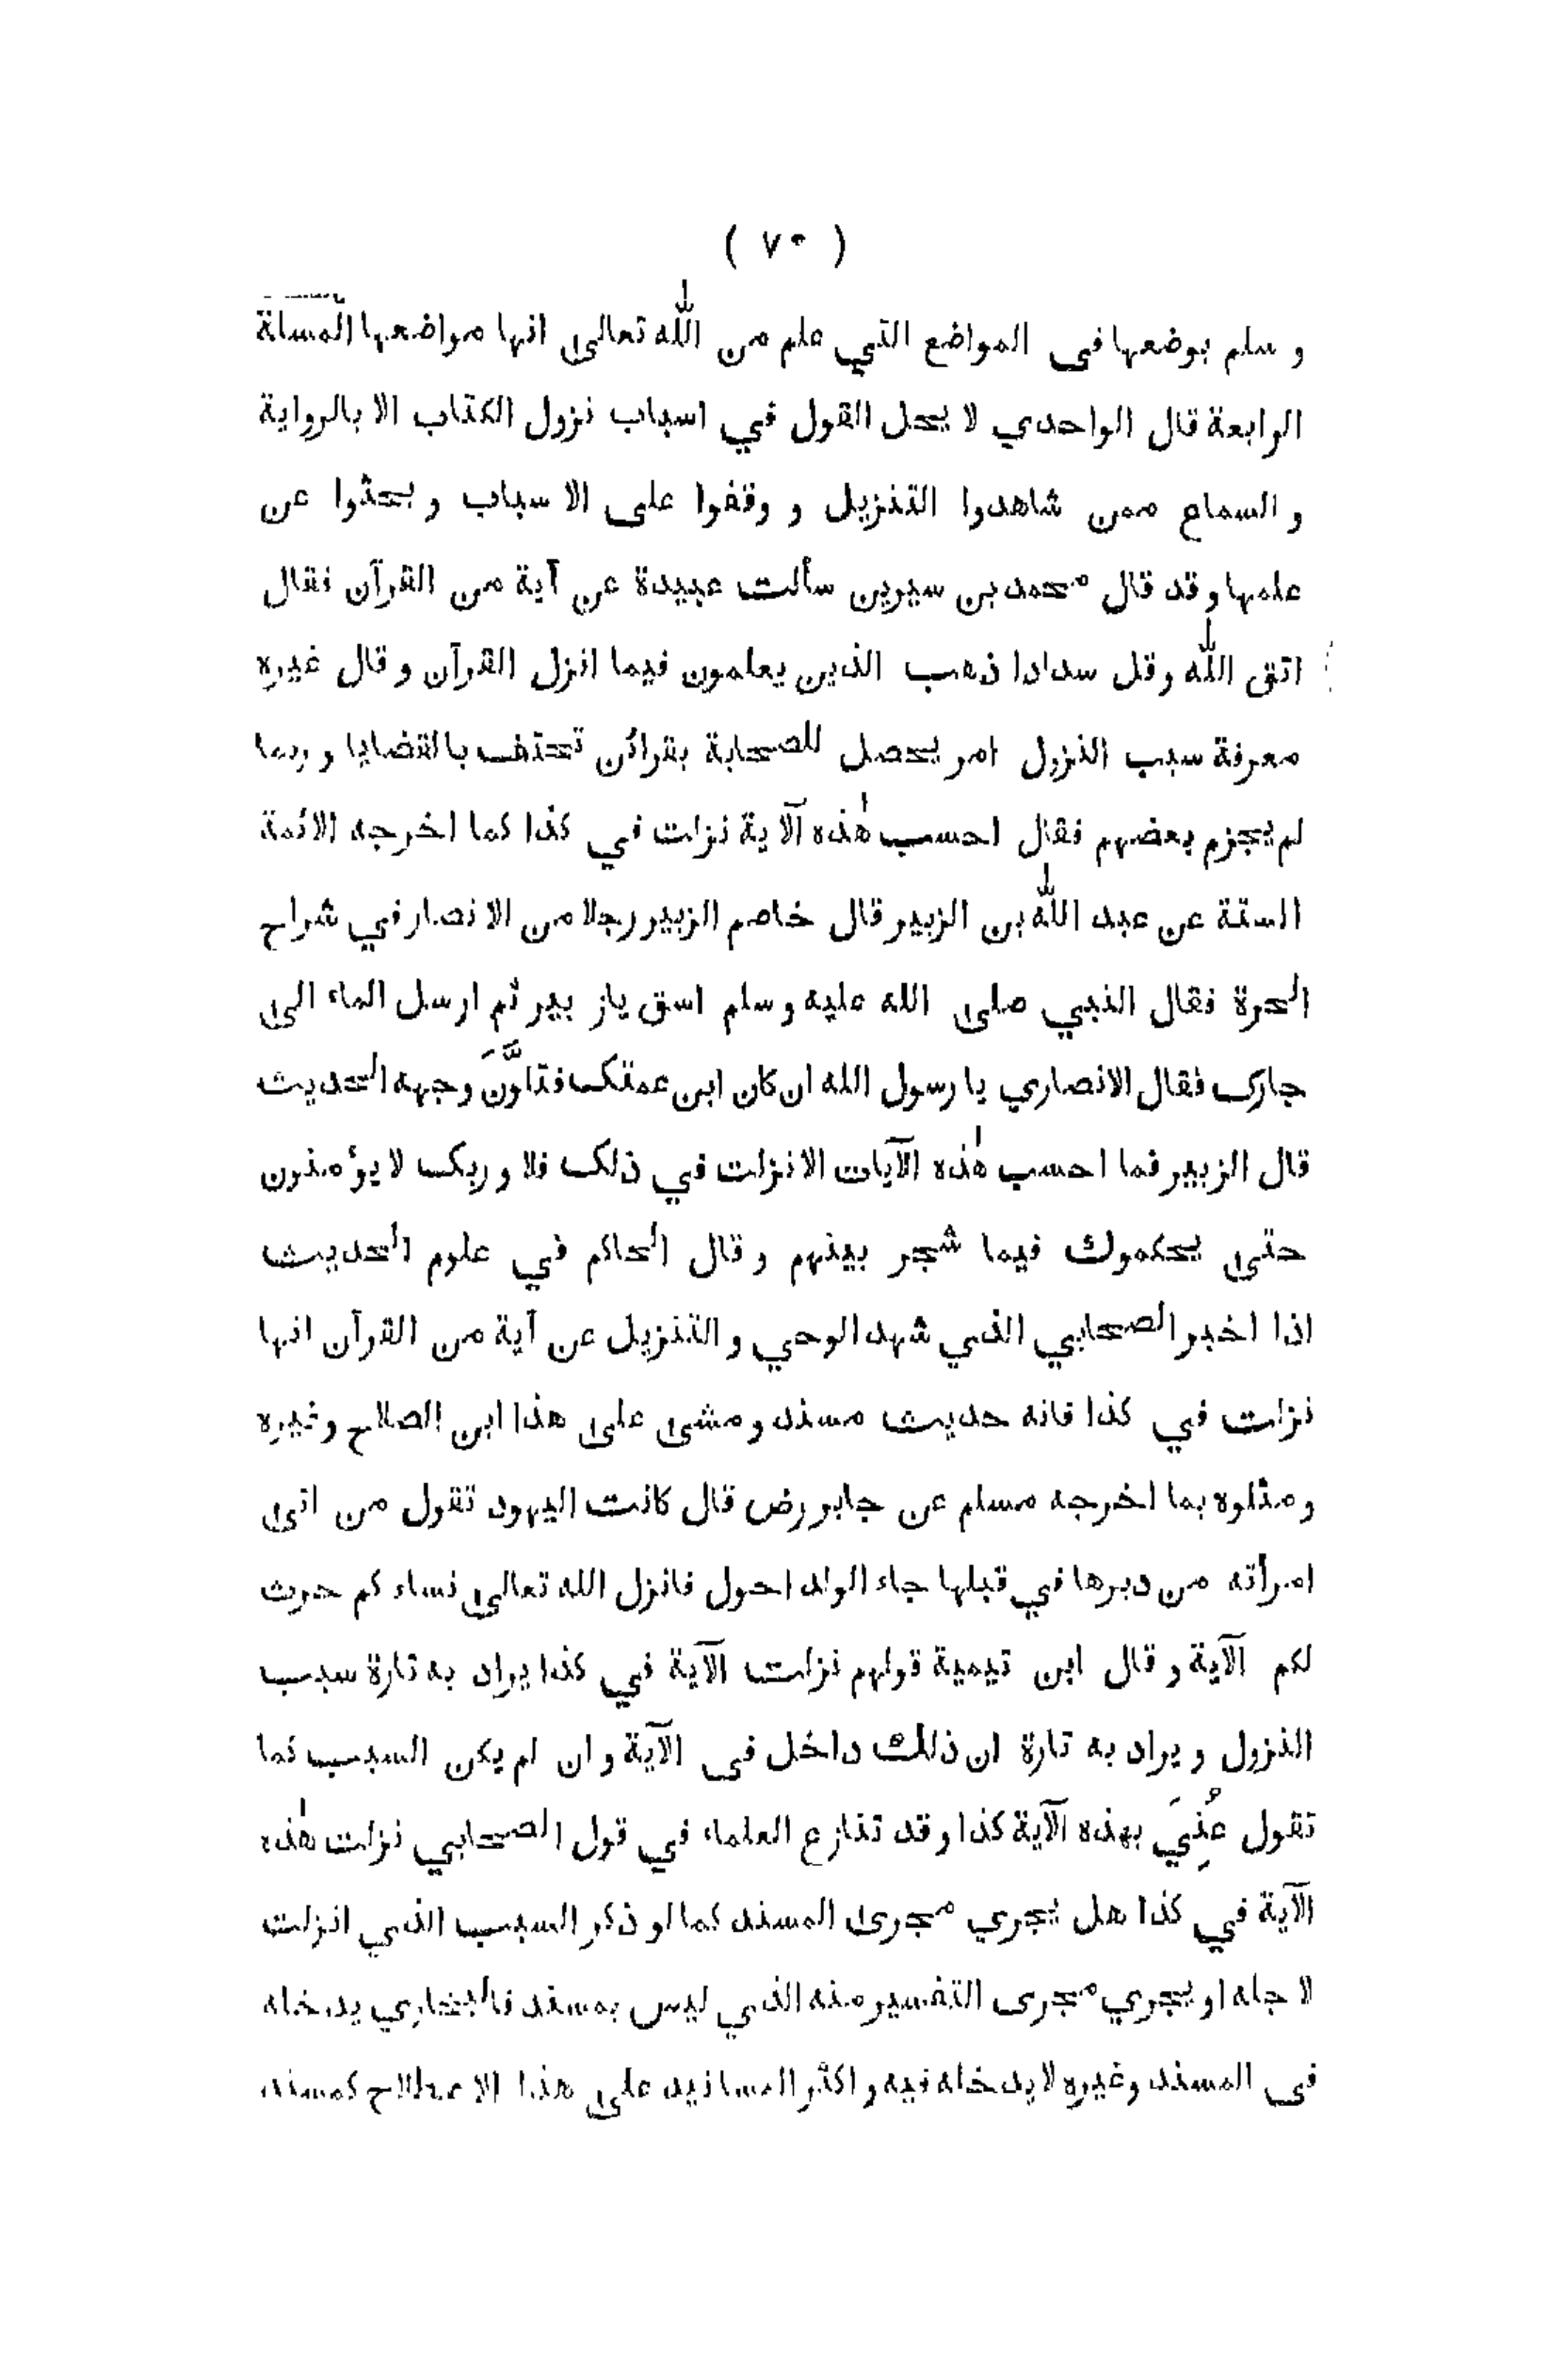 ( ٧٠ )
و سلم بوضعها فى المواضع التي علم من الله تعالىٰ انها مواضعها المسلة
الرابعة قال الواحدي لا يحل القول في اسباب نزول الكتاب الا بالرواية
و السماع ممن شاهدوا التنزيل و وقفوا على الا سباب و بحثوا عن
علمها و قد قال محمد بن سيرين سألت عبيدة عن آية من القرآن فقال
اتق الله و قل سدادا ذهب الذين يعلمون فيما انزل القرآن و قال غيره
معرفة سبب النزول امر يحصل للصحابة بقرائن تحتف بالقضايا و ربما
لم يجزم بعضهم فقال احسب هٰذه الآية نزلت في كذا كما اخرجه الائمة
الستة عن عبد الله بن الزبير قال خاصم الزبير رجلا من الا نصار في شراح
الحرة فقال النبي صلى الله عليه و سلم اسق ياز بير ثم ارسل الماء الى
جارك فقال الانصاري يا رسول الله ان كان ابن عمتك فتلوَّنَ وجهه الحديث
قال الزبير فما احسب هٰذه الآيات الا نزلت في ذلك فلا و ربك لا يؤمنون
حتى يحكموك فيما شجر بينهم و قال الحاكم في علوم الحديث
اذا اخبر الصحابي الذي شهد الوحي و التنزيل عن آية من القرآن انها
نزلت في كذا فانه حديث مسند و مشى على هذا ابن الصلاح و غيره
و مثلوه بما اخرجه مسلم عن جابر رض قال كانت اليهود تقول من اتى
امرأته من دبرها في قبلها جاء الولد احول فانزل الله تعالى نساء كم حرث
لكم الآية و قال ابن تيمية قولهم نزلت الآية في كذا يراد به تارة سبب
النزول و يراد به تارة ان ذلك داخل فى الآية و ان لم يكن السبب كما
تقول عُنِيَ بهذه الآية كذا و قد تنازع العلماء في قول الصحابي نزلت هٰذه
الآية في كذا هل يجري مجرى المسند كما لو ذكر السبب الذي انزلت
لا جله او يجري مجرى التفسير منه الذي ليس بمسند فالبخاري يدخله
فى المسند و غيره لا يدخله فيه و اكثر المسانيد على هذا الا صطلاح كمسند